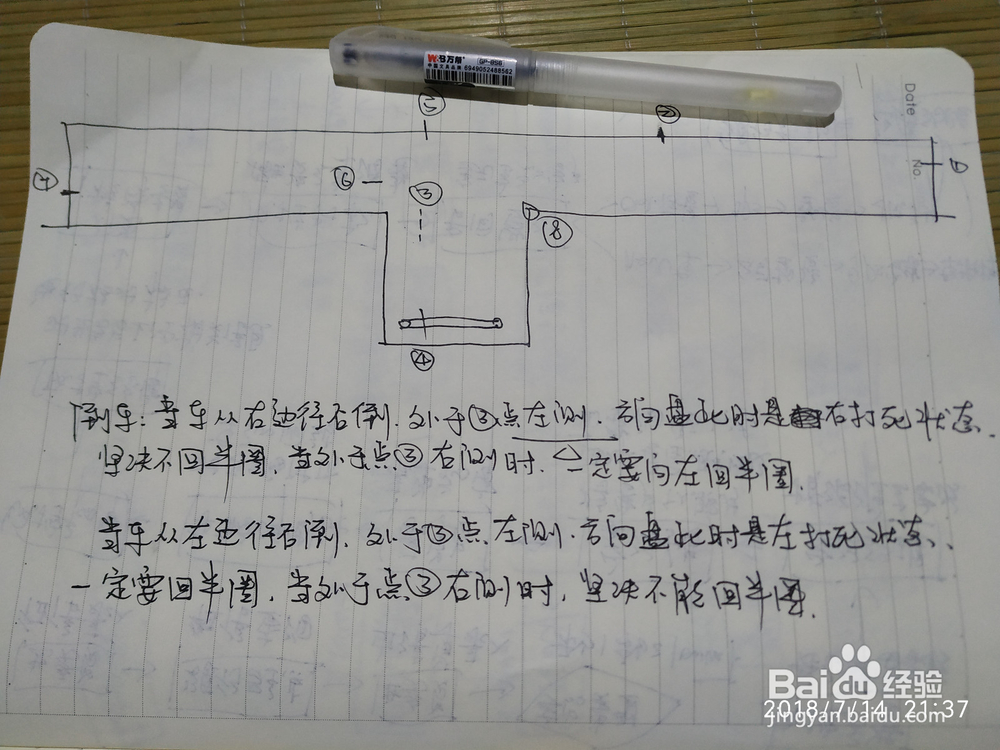 W&B万邦 GP-856
中国文具品牌 6949052486562
Date
No.
⑤
②
①
⑥
③
⑧
④
倒车:当车从右边往后倒.处于③点左侧.方向盘此时是右打死状态.
坚决不回半圈,当处于点③右侧时.一定要向左回半圈.
当车从左边往后倒.处于③点左侧.方向盘此时是左打死状态.
一定要回半圈.当处于点③右侧时,坚决不能回半圈.
Baidu经验
jingyan.baidu.com
2018/7/14 21:37